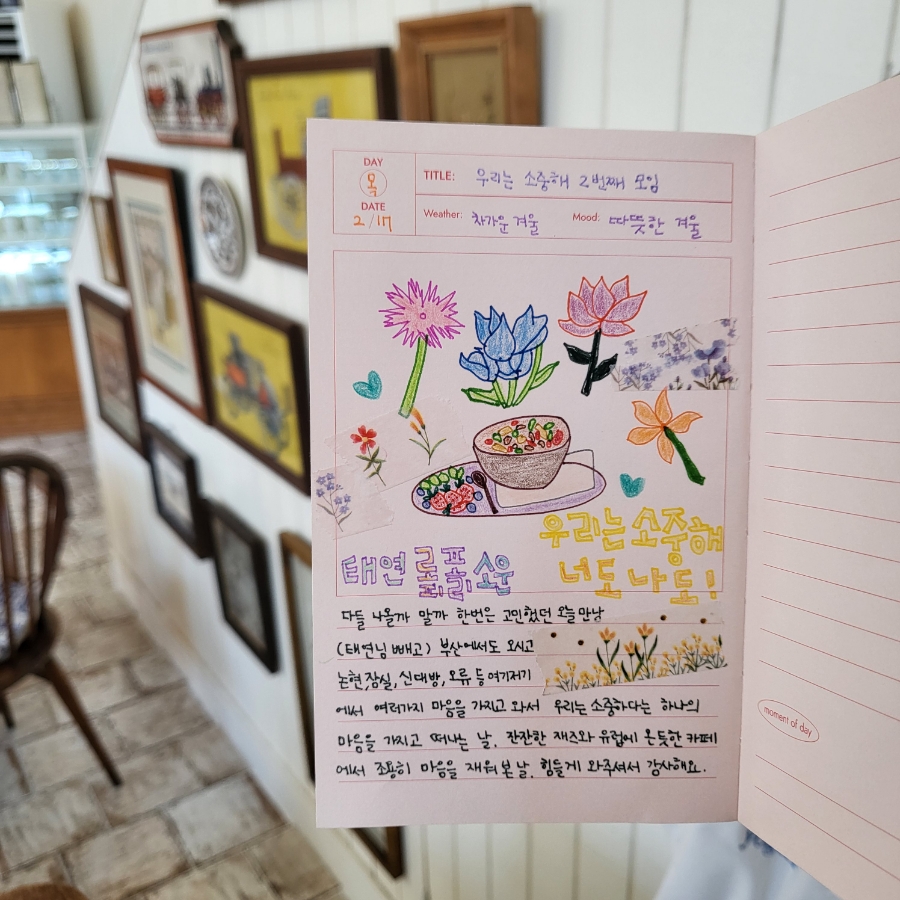 DAY
목
DATE
2/17
TITLE: 우리는 소중해 2번째 모임
Weather: 차가운 겨울 Mood: 따뜻한 겨울
우리는소중해
너도나도!
태연 소운
다들 나올까 말까 한번은 고민했던 오늘만남
(태연님 빼고) 부산에서도 오시고
논현,잠실,신대방,오류 등 여기저기
에서 여러가지 마음을 가지고 와서 우리는소중하다는 하나의
마음을 가지고 떠나는 날. 잔잔한 재즈와 유럽에 온듯한 카페
에서 조용히 마음을 재워본날. 힘들게 와주셔서 감사해요.
moment of day